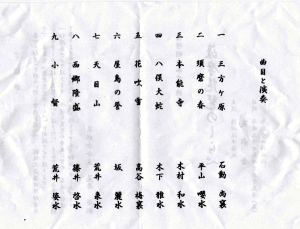 曲目と演奏
一 三方ヶ原 石動 尚襄
二 須磨の春 平山 嘤水
三 本能寺 木村 和水
四 八俣大蛇 木下 雅水
五 花吹雪 高谷 梅襄
六 屋島の誉 坂 麗水
七 天目山 荒井 泉水
八 西郷隆盛 篠井 啓水
九 小督 荒井 姿水